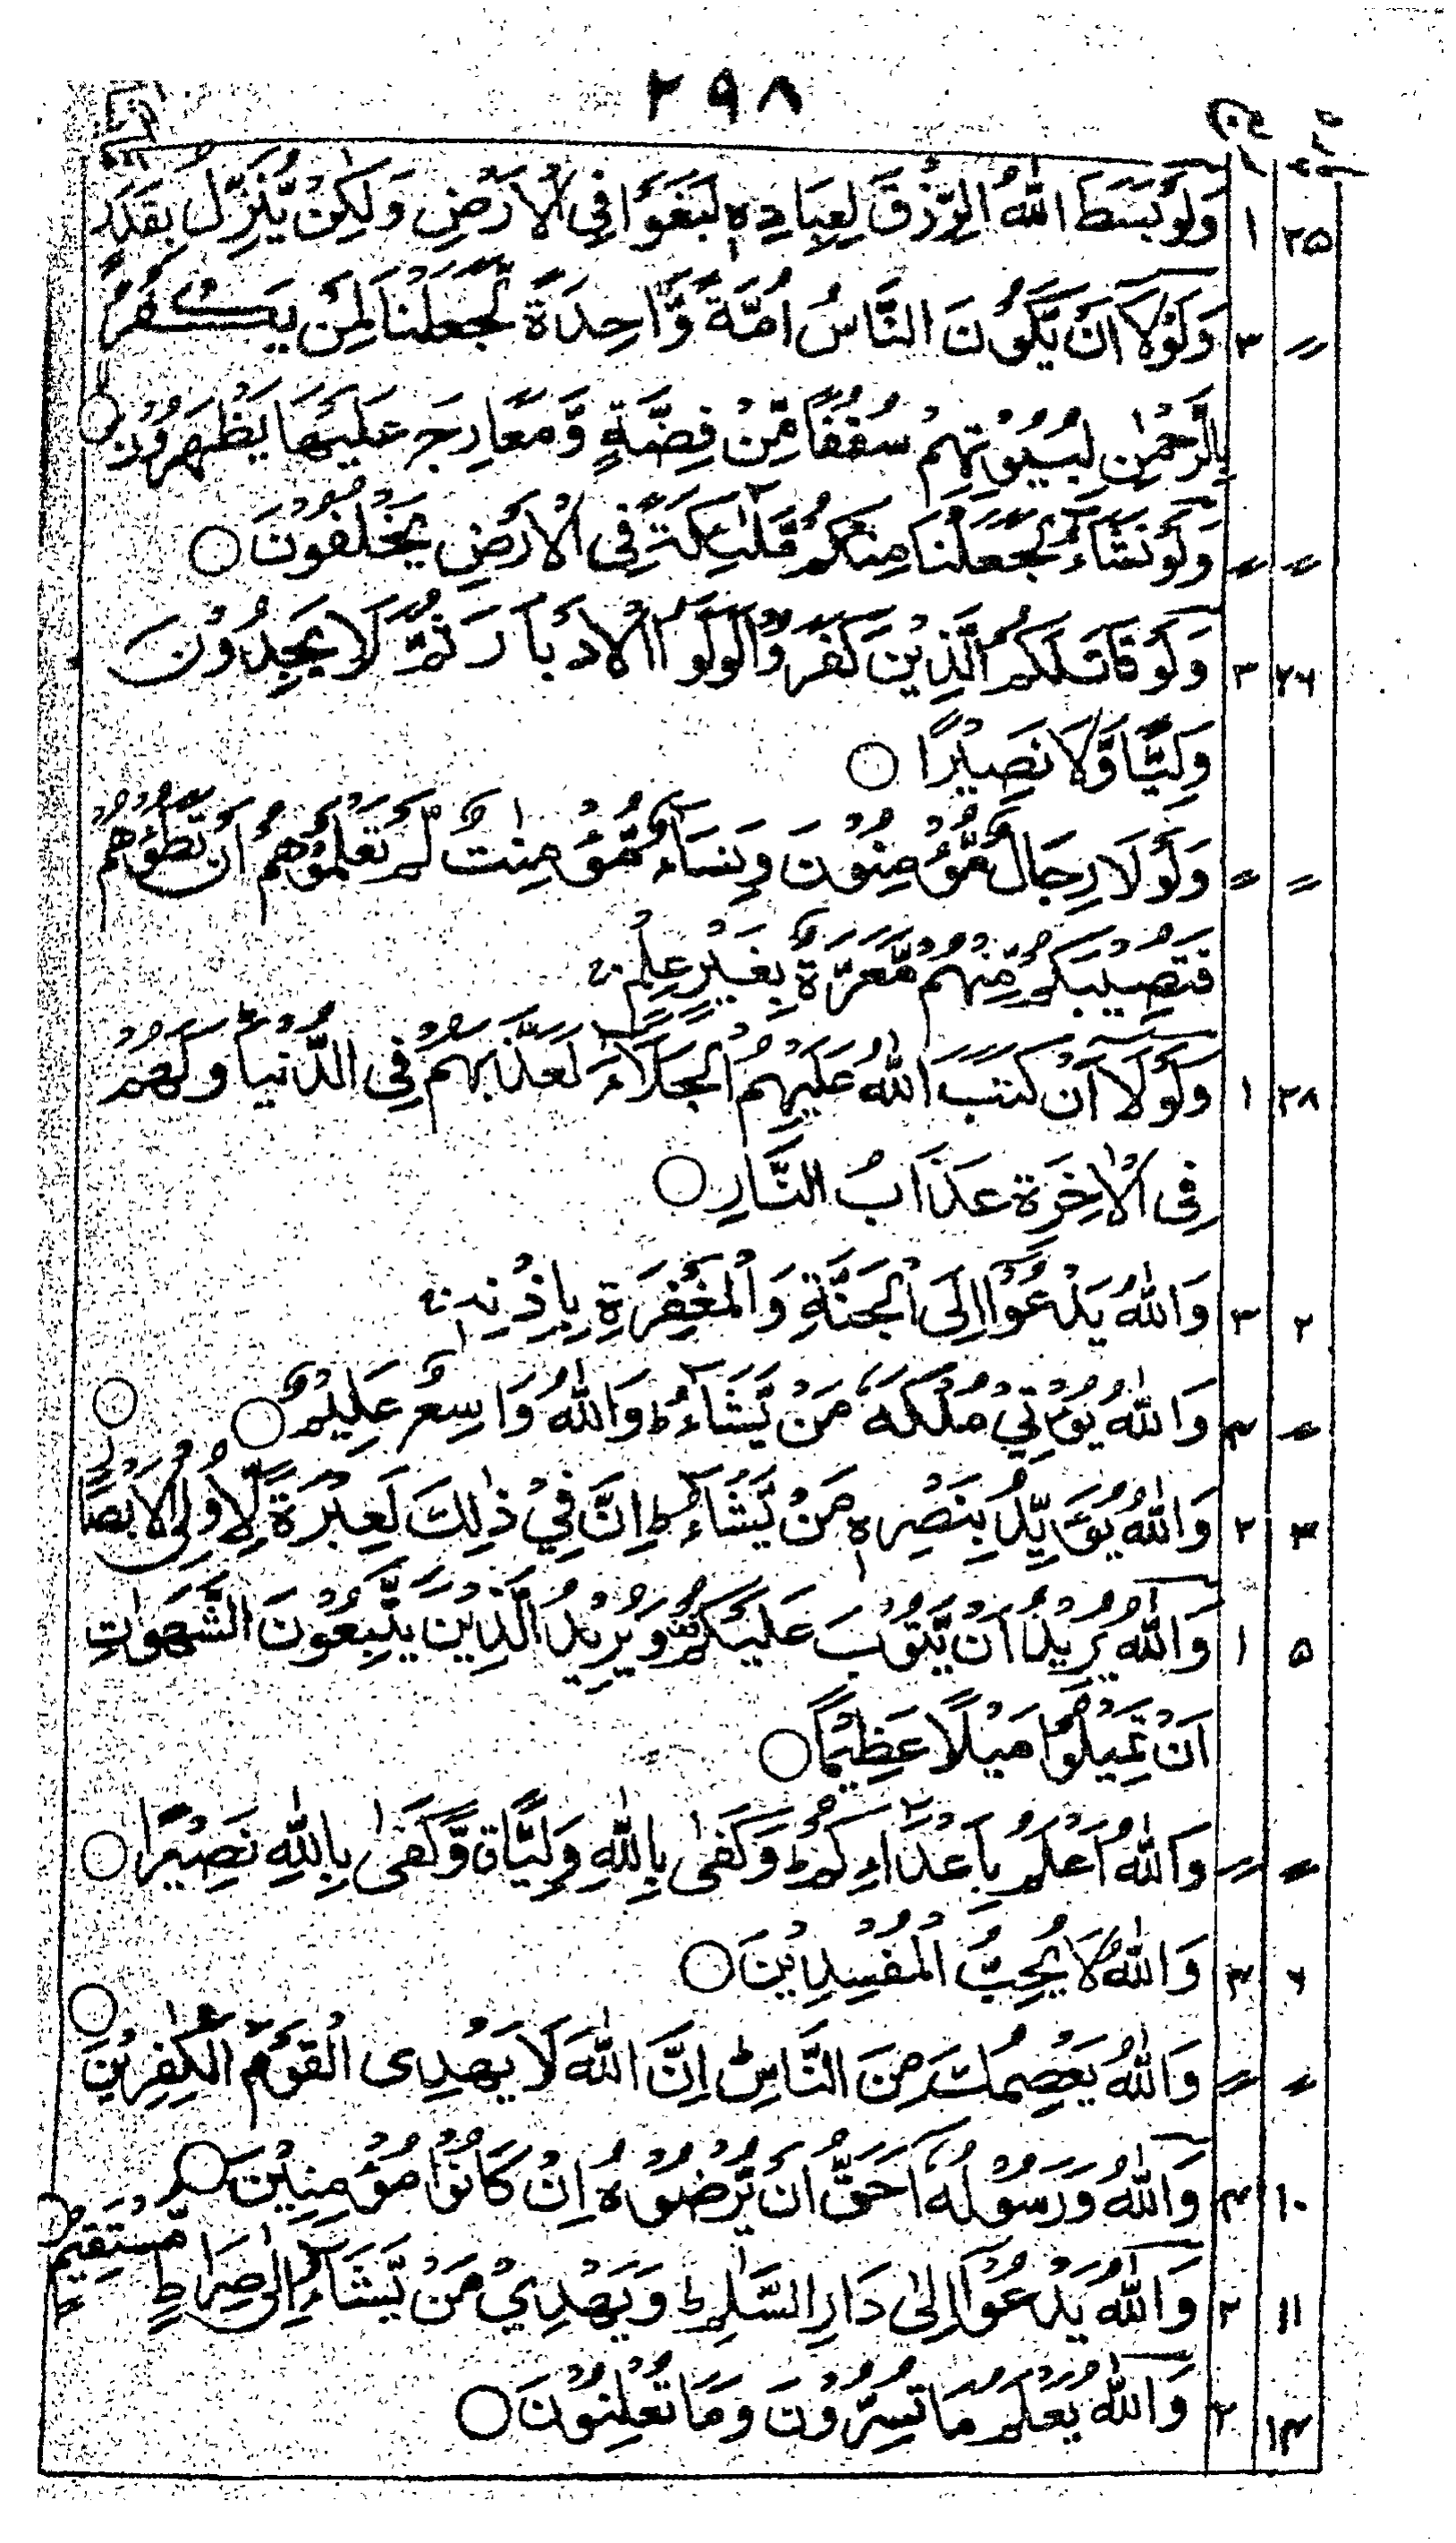 ۲۹۸
۲۵ ۱ وَلَوْ بَسَطَ اللّٰهُ الرِّزْقَ لِعِبَادِهٖ لَبَغَوْا فِی الْاَرْضِ وَلٰكِنْ یُّنَزِّلُ بِقَدَرٍ
〃 ۳ وَلَوْلَاۤ اَنْ یَّكُوْنَ النَّاسُ اُمَّةً وَّاحِدَةً لَّجَعَلْنَا لِمَنْ یَكْفُرُ
بِالرَّحْمٰنِ لِبُیُوْتِهِمْ سُقُفًا مِّنْ فِضَّةٍ وَّ مَعَارِجَ عَلَیْهَا یَظْهَرُوْنَ ○
〃 〃 وَلَوْ نَشَآءُ لَجَعَلْنَا مِنْكُمْ مَّلٰٓئِكَةً فِی الْاَرْضِ یَخْلُفُوْنَ ○
۲۶ ۳ وَلَوْ قَاتَلَكُمُ الَّذِیْنَ كَفَرُوْا لَوَلَّوُا الْاَدْبَارَ ثُمَّ لَا یَجِدُوْنَ
وَلِیًّا وَّلَا نَصِیْرًا ○
〃 〃 وَلَوْلَا رِجَالٌ مُّؤْمِنُوْنَ وَنِسَآءٌ مُّؤْمِنٰتٌ لَّمْ تَعْلَمُوْهُمْ اَنْ تَطَـُٔوْهُمْ
فَتُصِیْبَكُمْ مِّنْهُمْ مَّعَرَّةٌۢ بِغَیْرِ عِلْمٍ
۲۸ ۱ وَلَوْلَاۤ اَنْ كَتَبَ اللّٰهُ عَلَیْهِمُ الْجَلَآءَ لَعَذَّبَهُمْ فِی الدُّنْیَا ؕ وَلَهُمْ
فِی الْاٰخِرَةِ عَذَابُ النَّارِ ○
۲ ۳ وَاللّٰهُ یَدْعُوْۤا اِلَی الْجَنَّةِ وَالْمَغْفِرَةِ بِاِذْنِهٖ
〃 ۴ وَاللّٰهُ یُؤْتِیْ مُلْكَهٗ مَنْ یَّشَآءُ ؕ وَاللّٰهُ وَاسِعٌ عَلِیْمٌ ○
۳ ۲ وَاللّٰهُ یُؤَیِّدُ بِنَصْرِهٖ مَنْ یَّشَآءُ ؕ اِنَّ فِیْ ذٰلِكَ لَعِبْرَةً لِّاُولِی الْاَبْصَارِ ○
۵ ۱ وَاللّٰهُ یُرِیْدُ اَنْ یَّتُوْبَ عَلَیْكُمْ وَیُرِیْدُ الَّذِیْنَ یَتَّبِعُوْنَ الشَّهَوٰتِ
اَنْ تَمِیْلُوْا مَیْلًا عَظِیْمًا ○
〃 〃 وَاللّٰهُ اَعْلَمُ بِاَعْدَآءِكُمْ ؕ وَكَفٰی بِاللّٰهِ وَلِیًّا ۗ وَّكَفٰی بِاللّٰهِ نَصِیْرًا ○
۶ ۴ وَاللّٰهُ لَا یُحِبُّ الْمُفْسِدِیْنَ ○
〃 〃 وَاللّٰهُ یَعْصِمُكَ مِنَ النَّاسِ ؕ اِنَّ اللّٰهَ لَا یَهْدِی الْقَوْمَ الْكٰفِرِیْنَ ○
۱۰ ۴ وَاللّٰهُ وَرَسُوْلُهٗۤ اَحَقُّ اَنْ یُّرْضُوْهُ اِنْ كَانُوْا مُؤْمِنِیْنَ ○
۱۱ ۲ وَاللّٰهُ یَدْعُوْۤا اِلٰی دَارِ السَّلٰمِ ؕ وَیَهْدِیْ مَنْ یَّشَآءُ اِلٰی صِرَاطٍ مُّسْتَقِیْمٍ ○
۱۴ ۲ وَاللّٰهُ یَعْلَمُ مَا تُسِرُّوْنَ وَمَا تُعْلِنُوْنَ ○